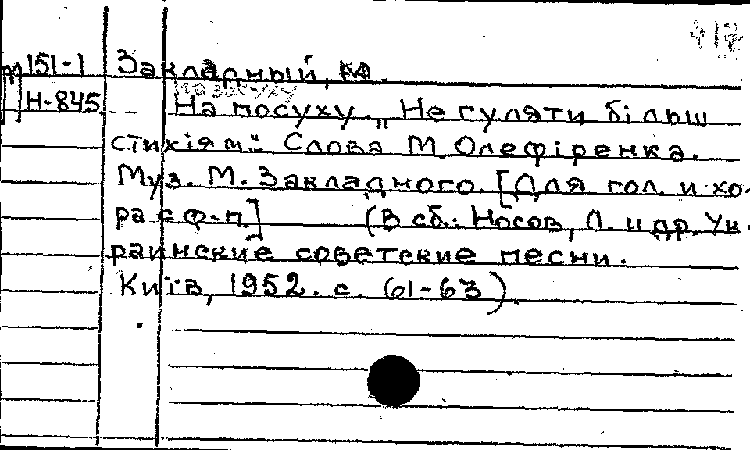 417
м 151-1 Закладный, М.
Н-845 На посуху. „Не гуляти більш
стихіям." Слова М. Олефіренка.
Муз. М. Закладного. [Для гол. и хо-
ра с ф-п.] (В сб.: Носов, Л. и др. Ук-
раинские советские песни.
Київ, 1952. с. 61-63).